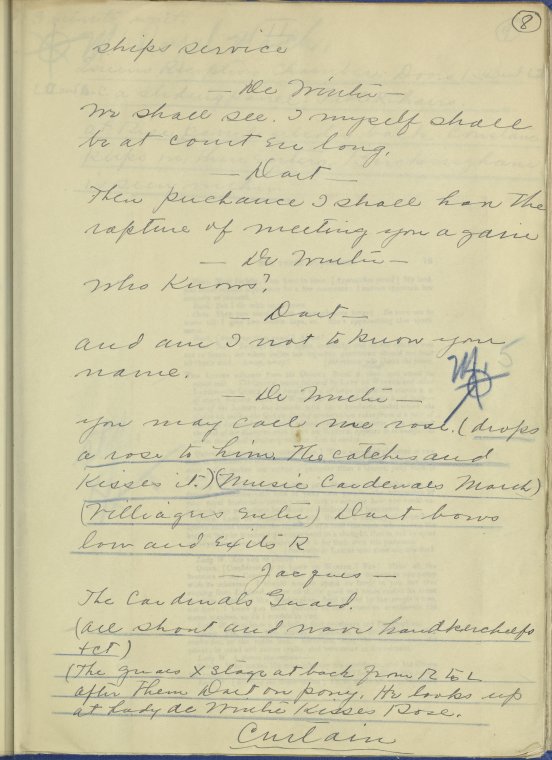 8
ships service
— De Winter —
We shall see. I myself shall
be at court ere long.
— Dart —
Then perchance I shall have the
rapture of meeting you again
— De Winter —
Who Knows?
— Dart —
and am I not to know your
name.
— De Winter —
you may call me rose. (drops
a rose to him. He catches and
Kisses it.) (Music Cardenals March)
(Villiagers enter) Dart bows
low and Exits R
— Jacques —
The Cardenals Guard.
(all shout and wave handkercheifs
+ct)
(The X stage at back from R to L
after them Dart on pony. He looks up
at Lady de Winter Kisses Rose.
Curtain